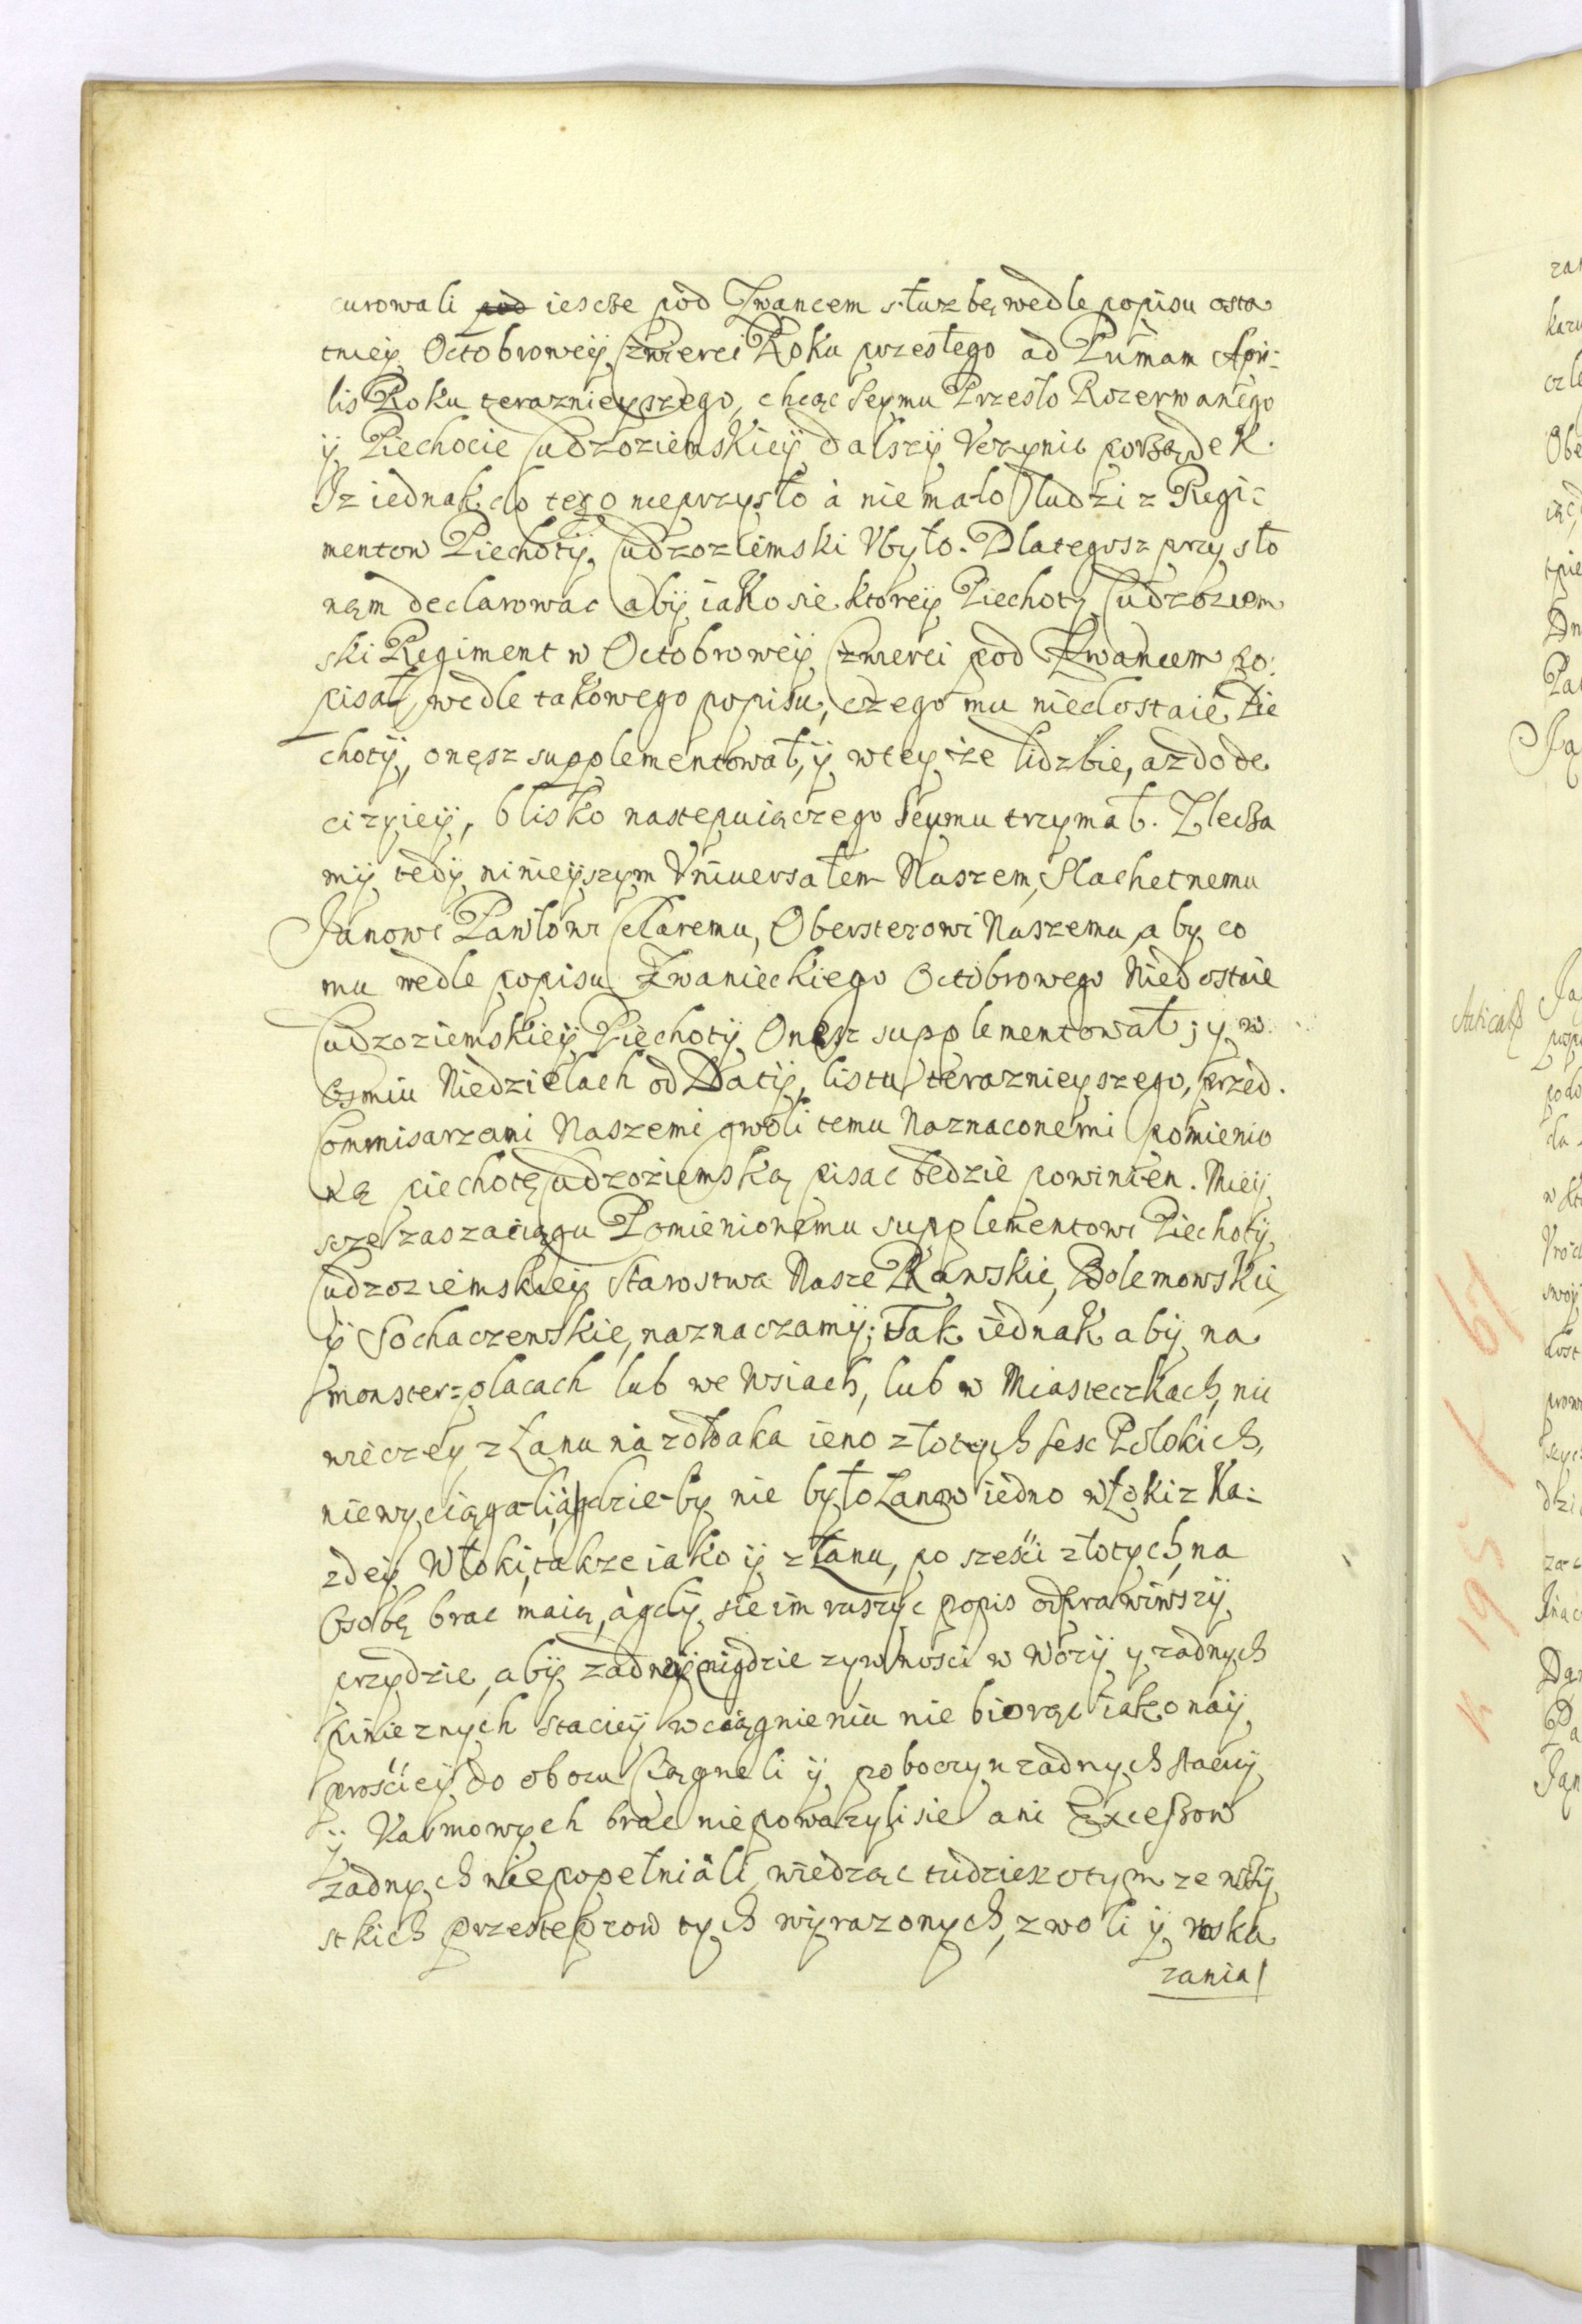 curowali pod iescze pod Zwancem słuzbę wedle popisu osta
tniey Octobroweÿ Czwierci Roku przesłego ad Primam Apri-
lis Roku teraznieyszego, chcąc Seymu Przesło Rozerwanego
ÿ Piechocie Cudzoziemskieÿ dalszÿ Vczynic porządek.
Iz iednak do tego nieprzysło à niemało ludzi z Regi-
mentow Piechotÿ Cudzoziemski Vbyło. Dlategosz przysło
nąm declarowac abÿ iako sie ktoreÿ Piechotÿ Cudzoziem
ski Regiment w Octobroweÿ Czwierci pod Zwancem po:
pisał, wedle takowego popisu, czego mu niedostaie Pie
chotÿ, onęsz supplementował, ÿ wteyze lidzbie, az do de
cizyieÿ, blisko nastepuiączego Seymu trzymał. Zlecza
mÿ tedÿ ninieÿszym Vniuersałem Naszem, Slachetnemu
Janowi Pawłowi Celaremu, Obersterowi Naszemu, aby co
mu wedle popisu Zwanieckiego Octobrowego Niedostaie
Cudzoziemskieÿ Piechotÿ Onęsz supplementował; y w
Osmiu Niedzielach od Datÿ, listu terazniepszego, przed
Commisarzami Naszemi gwoli temu Naznaconemi pomienio
ną piechotę Cudzoziemską pisac będzie powinien. Mieÿ
scze zas zaciągu Pomienionemu supplementowi Piechotÿ
Cudzoziemskieÿ Starostwa Nasze Rawskie, Bolemowskie,
ÿ Sochaczewskie, naznaczamÿ; Tak iednak abÿ na
monster-placach lub we Wsiach, lub w Miasteczkach, nie
wieczey z Łanu na zołdaka ieno złotych sesc Polskich,
niewyciągali, a gdzie by nie było Łanow iedno włoki z Ka-
zdeÿ Włoki, takze iako ÿ z Łanu, po sześci złotych, na
Osobę brac maią, à gdÿ sie im ruszyc popis odprawiwszÿ
przydzie, abÿ zadneÿ nigdzie zywnosci w wozÿ y zadnych
pinieznych stacieÿ w ciągnieniu nie biorąc iako naÿ
prościeÿ do obozu Ciągneli ÿ poboczyn zadnych staciÿ
ÿ Karmowych brac niepowazyli sie ani Excessow
zadnych niepopełniali, wiedząc tudziesz o tym ze wszÿ
stkich przestepcow tych wÿrazonych, z woli ÿ roska
zania